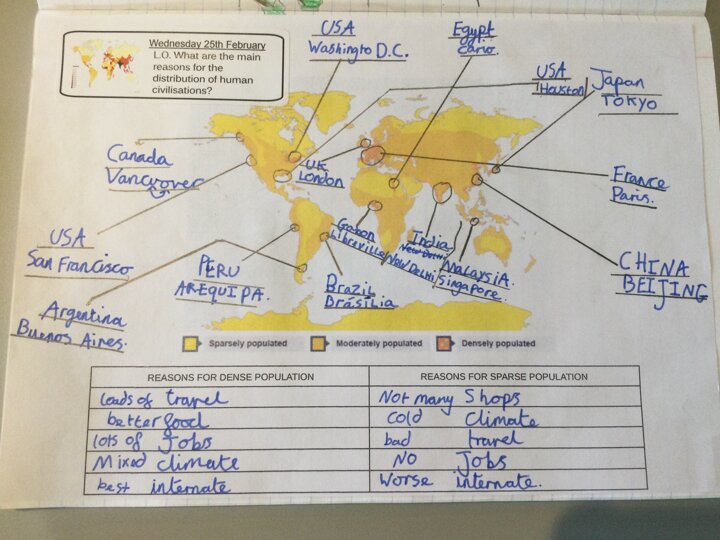 Wednesday 25th February
L.O. What are the main
reasons for the
distribution of human
civilisations?
USA
Washingto D.C.
Egypt
Cario.
USA
Houston
Japan
TOKYO
Canada
Vancrover
UK
LONDON
France
Paris.
USA
San Francisco
PERU
AREQUIPA.
Gabon
Libreville
India
New Delhi
New Delhi
Malaysia.
Singapore.
CHINA
BEIJING
Argentina
Buenos Aires.
Brazil
Brásilia
Sparsely populated
Moderately populated
Densely populated
REASONS FOR DENSE POPULATION
REASONS FOR SPARSE POPULATION
loads of travel
Not many Shops
better food
cold climate
lots of Jobs
bad travel
Mixed climate
NO Jobs
best internate
Worse internate.